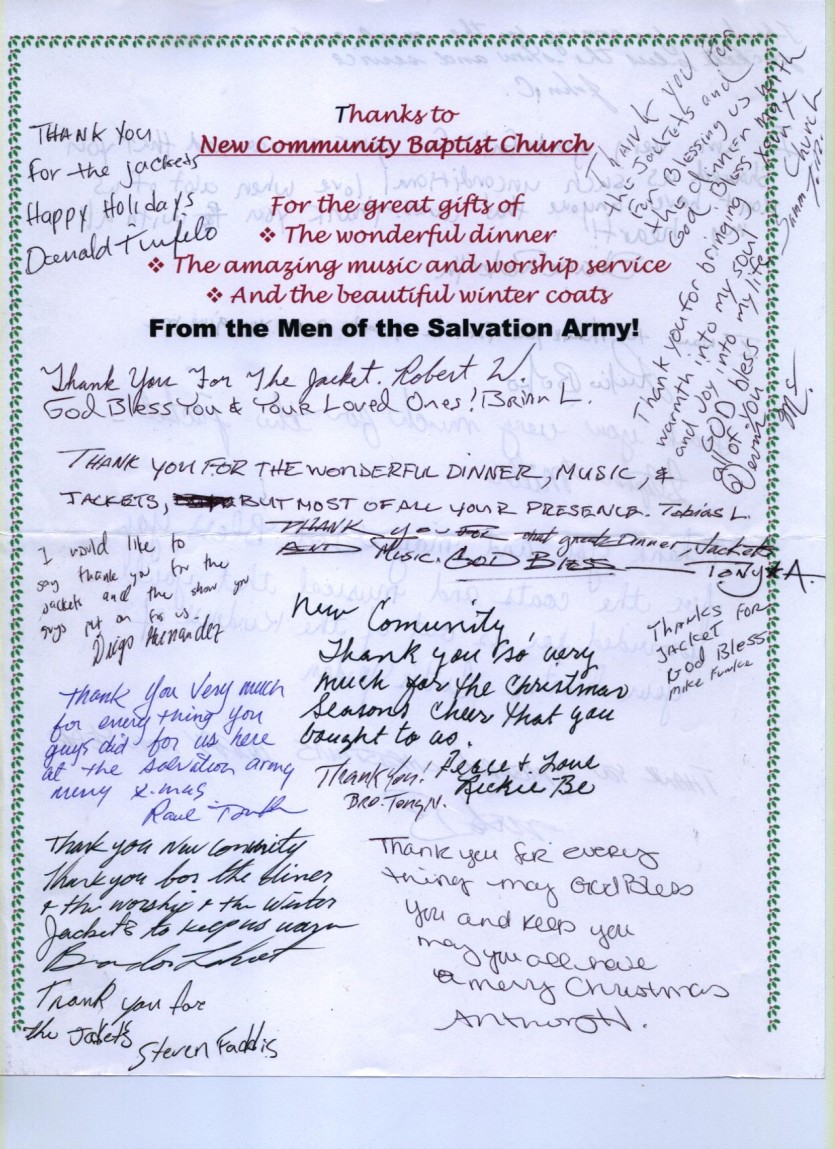 Thanks to
New Community Baptist Church
For the great gifts of
❖ The wonderful dinner
❖ The amazing music and worship service
❖ And the beautiful winter coats
From the Men of the Salvation Army!
THANK YOU
For the jackets
Happy Holidays
Donald
THANK YOU For
the Jackets and
For Blessing us with
this dinner may
God Bless your
Church
Thank you for bringing
warmth into my soul
and Joy into my life
GOD bless
all of you
M.S.
Thank You For The Jacket. Robert W.
God Bless You & Your Loved Ones! Brian L.
THANK YOU FOR THE WONDERFUL DINNER, MUSIC, &
JACKETS, BUT MOST OF ALL YOUR PRESENCE. Tobias L.
THANK YOU FOR that great Dinner Jackets
AND Music. GOD Bless Tony A.
I would like to
say thank you for the
jackets and the show you
guys put on for us.
Diego Hernandez
New Comunity
Thank you so very
much for the Christmas
Seasons Cheer that you
bought to us.
Peace & Love
Rickie Be
Thanks FOR
JACKET
God Bless
Mike
Thank you very much
for every thing you
guys did for us here
at the salvation army
merry x-mas
Thank you!
Bro. Tony N.
Thank you New Comunity
Thank you for the diner
& the worship & the winter
Jackets to keep us warm
Thank you for every
thing may God Bless
you and keep you
may you all have
a merry Christmas
Anthony H.
Thank you for
the Jackets
Steven Faddis